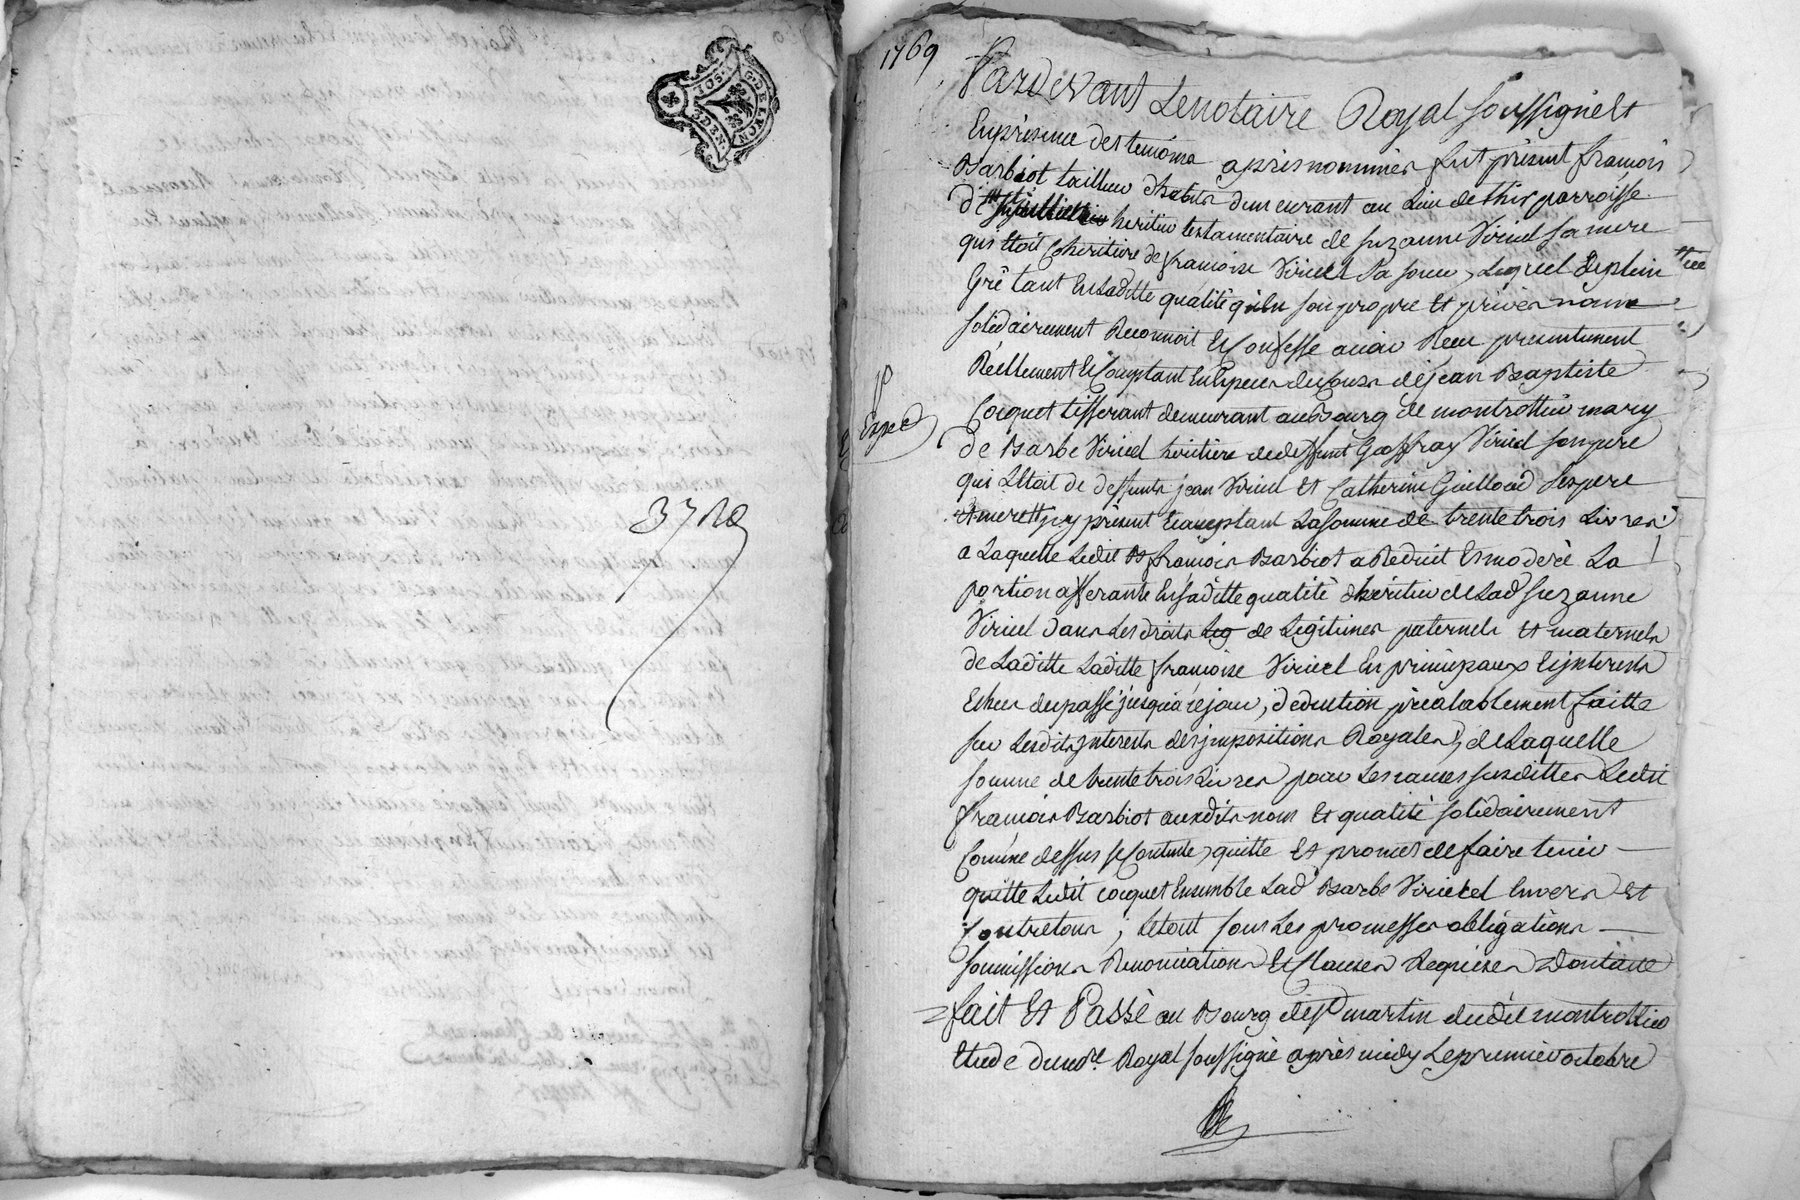 G. DE LYON
3 DEN.
3728
1769
Pardevant Le notaire Royal soussigné Et
En présence des temoins après nommés fut présent françois
Barbiot tailleur d'habits demeurant au Lieu de thir parroisse
de heritier testamentaire de Suzanne Viricel sa mere
qui êtoit Coheritiere de françoise Viricel sa soeur, Lequel de plein
Gré tant En Laditte qualité qu'En son propre et privé nom
solidairement Reconnoit Et Confesse avoir Receu presentement
Réellement Et Comptant En Especes de Cours de jean Baptiste
Expéd
Cocquet tisserant demeurant au Bourg de montrottier mary
de Barbe Viricel héritiere de deffunt Gaffray Viricel son pere
qui L'Etoit de deffunts jean Viricel Et Catherine Guilloud ses pere
Et mere icy présent Et acceptant La somme de trente trois Livres
a Laquelle Ledit françois Barbiot a Réduit Et modéré La
portion afferante En saditte qualité d'héritier de Lad Suzanne
Viricel dans Les droits Leg de Légitimes paternels Et maternels
de Laditte Laditte françoise Viricel En principaux Et jnterests
Echus du passé jusqu'à ce jour, déduction préalablement faitte
sur Lesdits jnterests des jmpositions Royales, de Laquelle
somme de trente trois Livres pour Les causes susdittes Ledit
françois Barbiot auxdits nom Et qualité solidairement
Comme dessus se Contente, quitte Et promet de faire tenir
quitte Ledit cocquet Ensemble Lad Barbe Viricel Envers Et
Contre tous, Le tout sous Les promesses obligations
soumissions Renonciations Et Clauses Requises Dont acte
fait Et Passé au Bourg de St martin dudit montrottier
Etude du ndre Royal soussigné après midy Le premier octobre